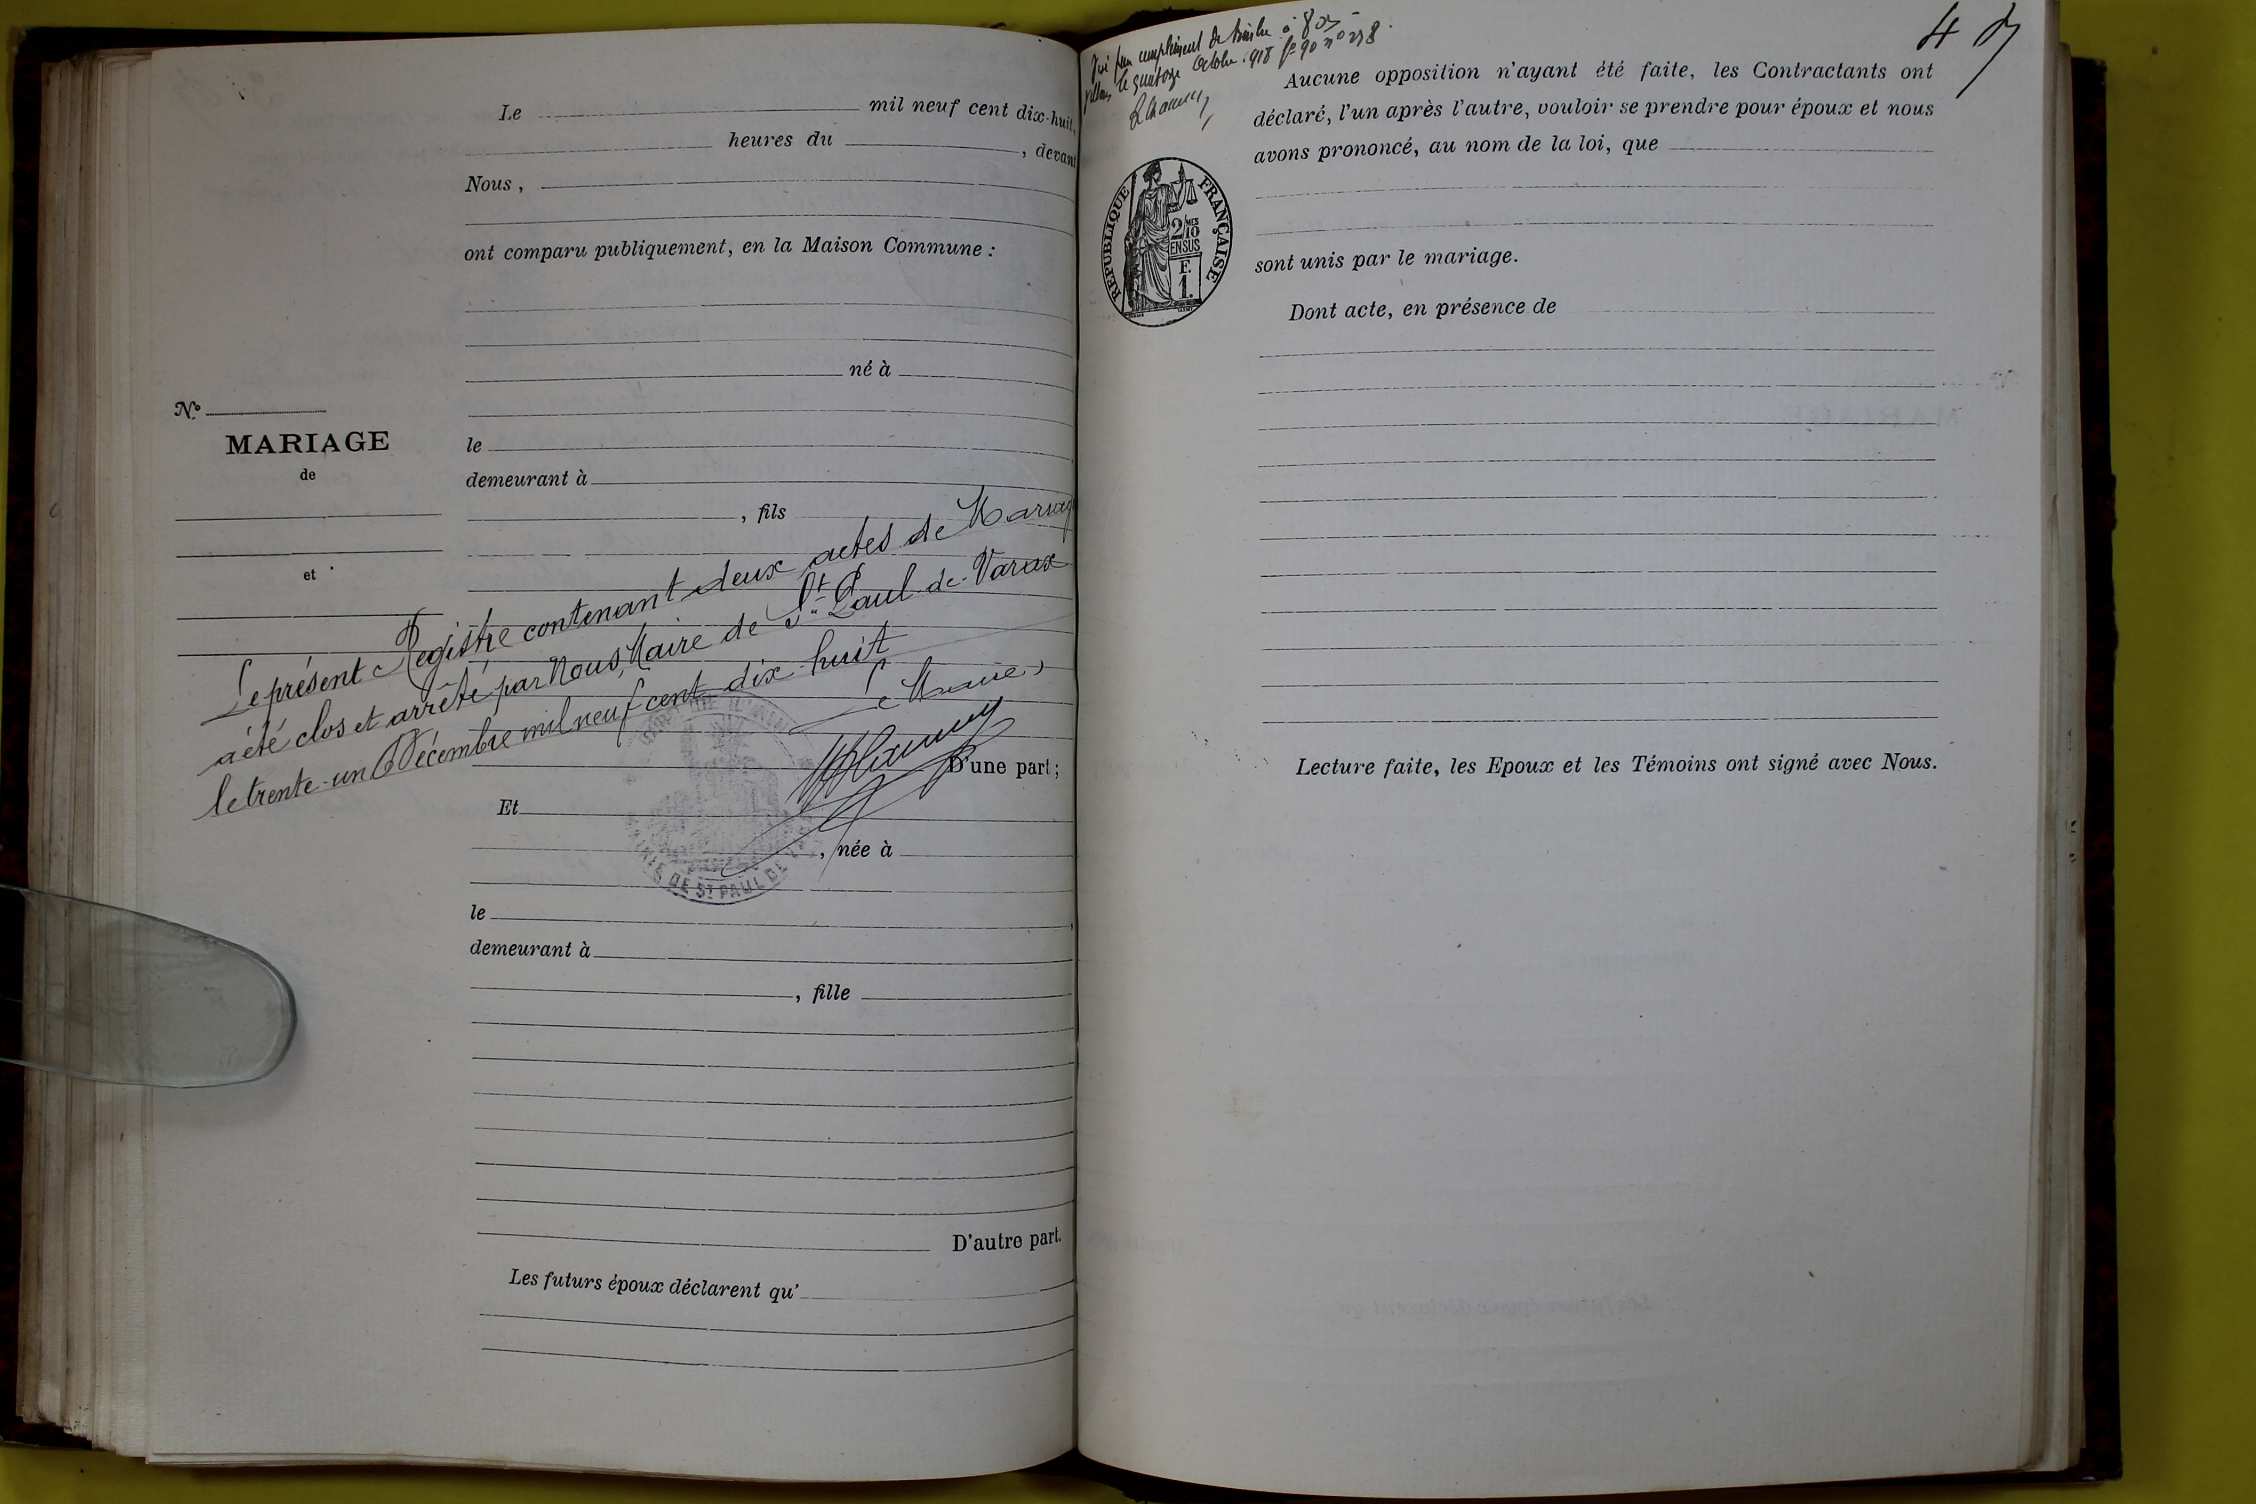 Le mil neuf cent dix-huit,
heures du , devant
Nous,
ont comparu publiquement, en la Maison Commune :
né à
N°
MARIAGE
de
et
le
demeurant à
, fils
Le présent Registre contenant deux actes de Mariage
a été clos et arrêté par Nous, Maire de St Paul-de-Varax
le trente-un Décembre mil neuf cent dix-huit
Le Maire,
D'une part ;
MAIRIE DE ST PAUL DE
Et
, née à
le
demeurant à
, fille
D'autre part.
Les futurs époux déclarent qu'
complément de timbre à
le quatorze Octobre 918 fo 90 no 238
4
Aucune opposition n'ayant été faite, les Contractants ont
déclaré, l'un après l'autre, vouloir se prendre pour époux et nous
avons prononcé, au nom de la loi, que
RÉPUBLIQUE FRANÇAISE
2/10 MES
EN SUS
F.
1.
sont unis par le mariage.
Dont acte, en présence de
Lecture faite, les Epoux et les Témoins ont signé avec Nous.